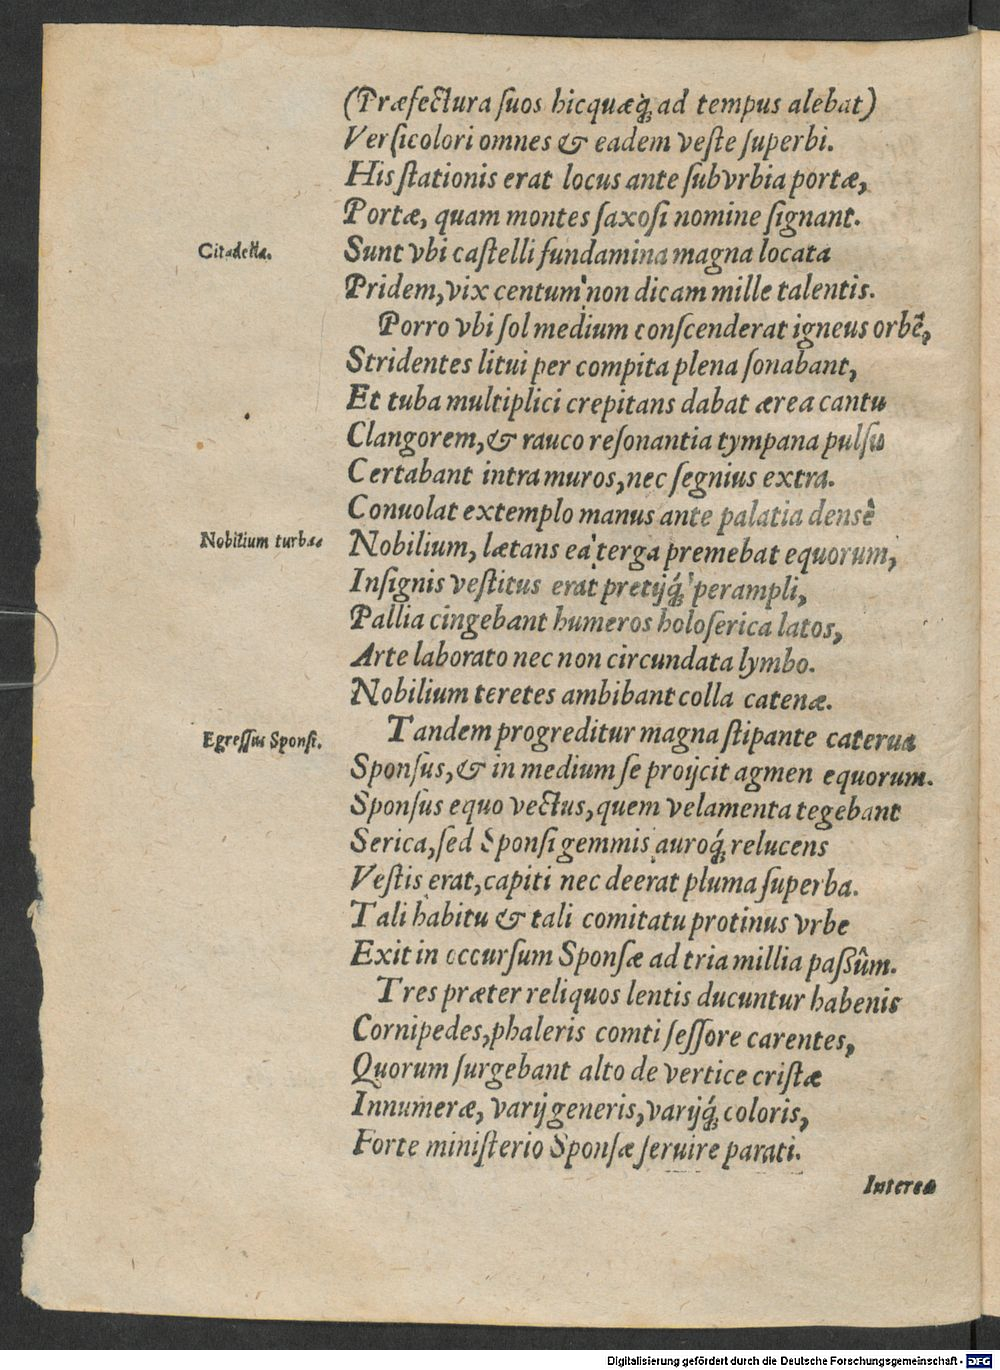 (Præfectura ſuos hic quæq́; ad tempus alebat)
Verſicolori omnes & eadem veſte ſuperbi.
His ſtationis erat locus ante ſubvrbia portæ,
Portæ, quam montes ſaxoſi nomine ſignant.
Citadella.
Sunt vbi caſtelli fundamina magna locata
Pridem, vix centum non dicam mille talentis.
Porro vbi ſol medium conſcenderat igneus orbē,
Stridentes litui per compita plena ſonabant,
Et tuba multiplici crepitans dabat ærea cantu
Clangorem, & rauco reſonantia tympana pulſu
Certabant intra muros, nec ſegnius extra.
Conuolat extemplo manus ante palatia denſè
Nobilium turba.
Nobilium, lætans ea terga premebat equorum,
Inſignis veſtitus erat pretijq́; perampli,
Pallia cingebant humeros holoſerica latos,
Arte laborato nec non circundata lymbo.
Nobilium teretes ambibant colla catenæ.
Egreſſus Sponſi.
Tandem progreditur magna ſtipante caterua
Sponſus, & in medium ſe proijcit agmen equorum.
Sponſus equo vectus, quem velamenta tegebant
Serica, ſed Sponſi gemmis auroq́; relucens
Veſtis erat, capiti nec deerat pluma ſuperba.
Tali habitu & tali comitatu protinus vrbe
Exit in occurſum Sponſæ ad tria millia paſsûm.
Tres præter reliquos lentis ducuntur habenis
Cornipedes, phaleris comti ſeſſore carentes,
Quorum ſurgebant alto de vertice criſtæ
Innumeræ, varij generis, varijq́; coloris,
Forte miniſterio Sponſæ ſeruire parati.
Interea
Digitalisierung gefördert durch die Deutsche Forschungsgemeinschaft - DFG